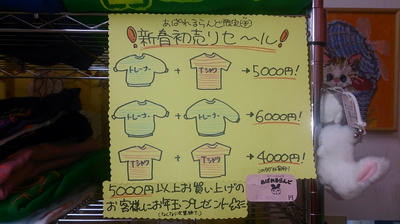 あぱれるらんど
新春初売りセ〜ル!
トレーナー + Tシャツ → 5000円!
トレーナー + トレーナー → 6000円!
Tシャツ + Tシャツ → 4000円!
5000円以上お買い上げの
お客様にお年玉プレゼント
あぱれるらんど
円